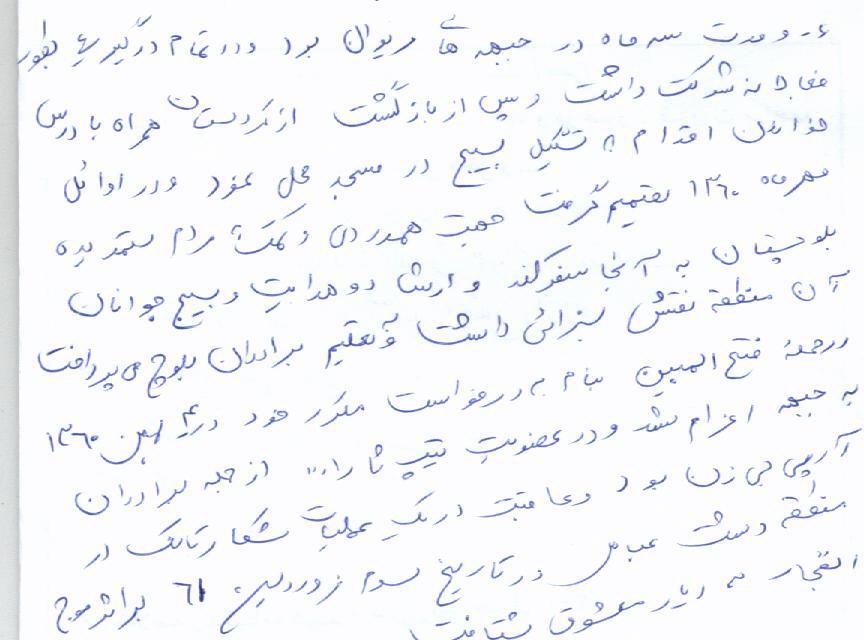 ۶- و مدت سه ماه در جبهه های مریوان بود و در تمام درگیریها بطور
فعالانه شرکت داشت و پس از بازگشت از کردستان همراه با درس
خواندن اقدام به تشکیل بسیج در مسجد محل نمود و در اوائل
مهرماه ۱۳۶۰ تصمیم گرفت جهت همدردی و کمک به مردم ستمدیده
بلوچستان به آنجا سفر کند و ارشاد و هدایت و بسیج جوانان
آن منطقه نقش بسزائی داشت و به تعلیم برادران بلوچ می پرداخت
در حمله فتح المبین بنام به درخواست مکرر خود در بهمن ۱۳۶۰
به جبهه اعزام شد و در عضویت تیپ ثارا... از جمله برادران
آرپی جی زن بود و عاقبت در یک عملیات شکار تانک در
منطقه دشت عباس در تاریخ سوم فروردین ۶۱ بر اثر موج
انفجار به دیار معشوق شتافت